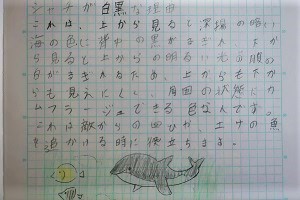 シャチが白黒な理由
これは、上から見ると深場の暗い
海の色に背中の黒がまぎれ、下か
ら見ると上からの明るい光でお腹の
白がまぎれるため、上からも下か
らも見えにくく、周囲の状態にカ
ムフラージュできる色なんです。
これは敵からの回ひや、エサの魚
を追かける時に役立ちます。